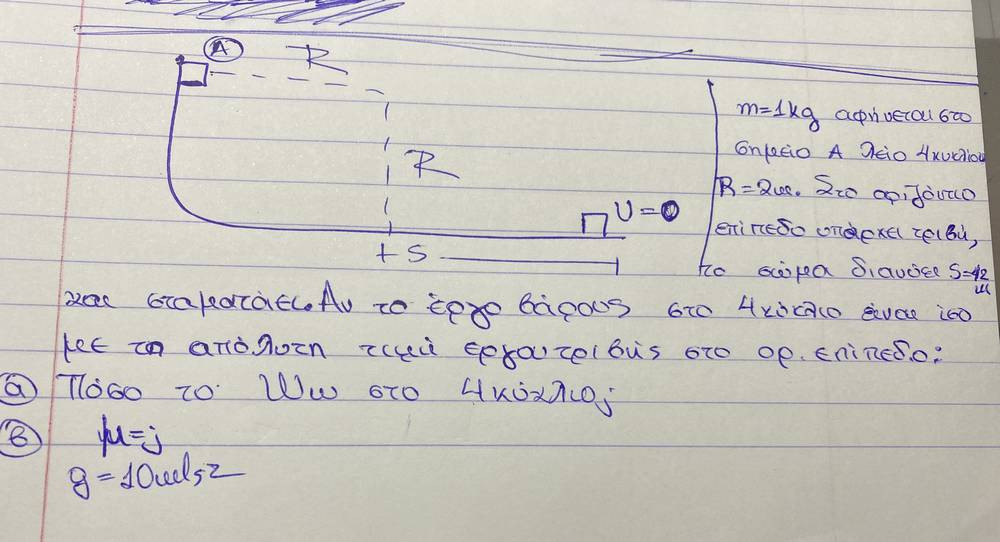 A R
R
U=0
+ S
m=1kg αφήνεται στο
σημείο Α λείο 4κυκλίου
R=2m. Στο οριζόντιο
επίπεδο υπάρχει τριβή,
το σώμα διανύσε S=12
m
και σταματάει. Αν το έργο βάρους στο 4κύκλιο είναι ίσο
με τη απόλυτη τιμή έργου τριβής στο ορ. επίπεδο:
α Πόσο το Ww στο 4κύκλιο;
β μ=;
g=10m/s2